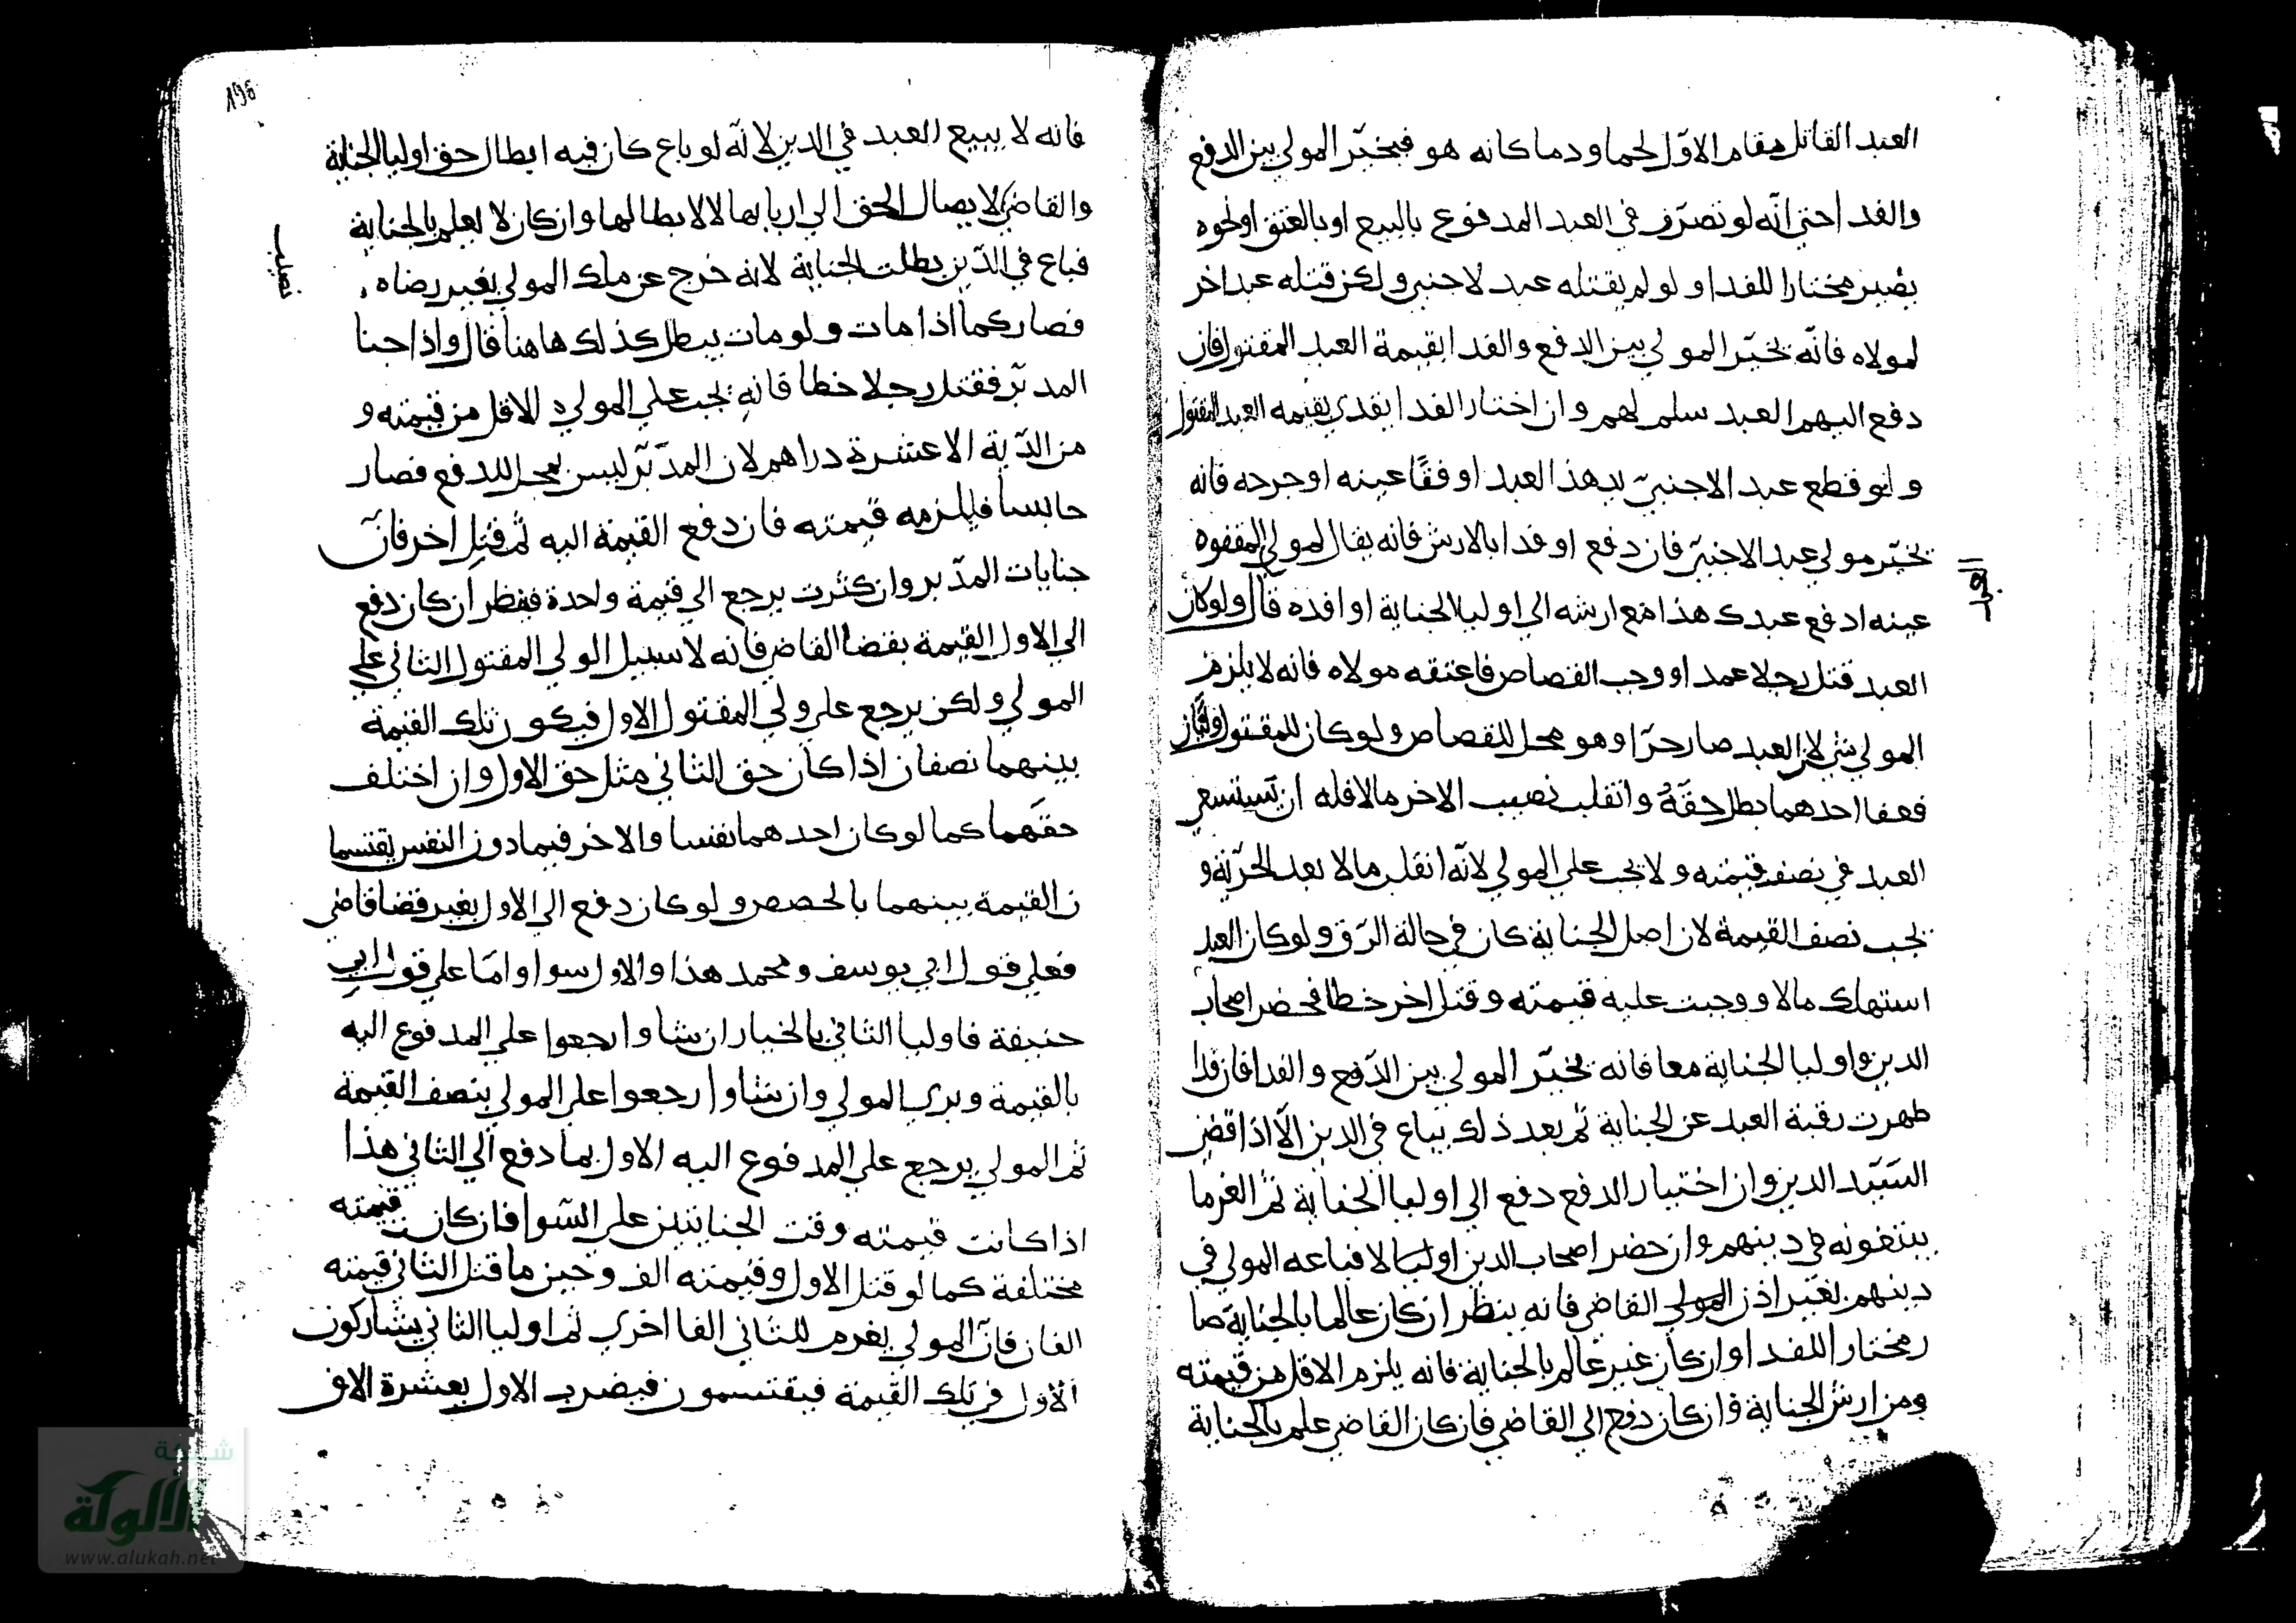 العبد القاتل مقام الاوّل لحما ودما كانه هو فيخيّر المولي بين الدفع
والفدا حتي انّه لو تصرّف في العبد المدفوع بالبيع او بالعتق او نحوه
يصير مختارا للفدا ولو لم يقتله عبد لاجنبي ولكن قتله عبد اخر
لمولاه فانّه يخيّر المولي بين الدفع والفدا بقيمة العبد المقتول فان
دفع اليهم العبد سلم لهم وان اختار الفدا يفدي بقيمه العبد المقتول
ولو قطع عبد الاجنبيّ يد هذا العبد او فقأ عينه او جرحه فانه
يخيّر مولي عبد الاجنبيّ فان دفع او فدا بالارش فانه يقال لمولي المفقوه
عينه ادفع عبدك هذا مع ارشه الي اوليا الجناية او افده قال ولو كان
العبد قتل رجلا عمدا ووجب القصاص فاعتقه مولاه فانه لا يلزم
المولي شي لان العبد صار حرّا وهو محل للقصاص ولو كان للمقتول وليّان
فعفا احدهما بطل حقّهُ وانقلب نصيب الاخر مالا فله ان يستسعي
العبد في نصف قيمته ولا يجب علي المولي لانّه انقلب مالا بعد الحرّيّة و
يجب نصف القيمة لان اصل الجناية كان في حالة الرّق ولو كان العبد
استهلك مالا ووجبت عليه قيمته وقتل اخر خطا فحضر اصحاب
الدين واوليا الجناية معا فانه يخيّر المولي بين الدّفع والفدا فان فدا
طهرت رقبة العبد عن الجناية ثم بعد ذلك يباع في الدين الّا اذا قضي
السّيّد الدين وان اختيار الدفع دفع الي اوليا الجناية ثم الغرما
يبتغونه في دينهم وان حضر اصحاب الدين اولا فباعه المولي في
دينهم بغير اذن المولي القاضي فانه ينظر ان كان عالما بالجناية صا
ر مختارا للفدا وان كان غير عالم بالجناية فانه يلزم الاقل من قيمته
ومن ارش الجناية وان كان دفع الي القاضي فان كان القاضي علم بالجناية
196
فانه لا يبيع العبد في الدين لانّه لو باع كان فيه ابطال حق اوليا الجناية
والقاضي لايصال الحق الي اربابها لا لابطالها وان كان لا يعلم بالجناية
فباع في الدّين بطلت الجناية لانه خرج عن ملك المولي بغير رضاه
فصار كما اذا مات ولو مات يبطل كذلك هاهنا قال واذا جنا
المدبّر فقتل رجلا خطا فانه يجب علي المولي الاقل من قيمته و
من الدّية الا عشرة دراهم لان المدبّر ليس بمحل للدفع فصار
حابسا فيلزمه قيمته فان دفع القيمة اليه ثم قتل اخر فانّ
جنايات المدّبر وان كثرت يرجع الي قيمة واحدة فينظر ان كان دفع
الي الاول القيمة بقضا القاضي فانه لا سبيل لولي المقتول الثاني علي
المولي ولكن يرجع علي ولي المقتول الاول فيكون تلك القيمة
بينهما نصفان اذا كان حق الثاني مثل حق الاول وان اختلف
حقّهما كما لو كان احدهما نفسا والاخر فيما دون النفس يقتسما
ن القيمة بينهما بالحصص ولو كان دفع الي الاول بغير قضا قاضي
فعلي قول ابي يوسف ومحمد هذا والاول سوا وامّا علي قول ابي
حنيفة فاوليا الثاني بالخيار ان شاوا رجعوا علي المدفوع اليه
بالقيمة وبري المولي وان شاوا رجعوا علي المولي بنصف القيمة
ثم المولي يرجع علي المدفوع اليه الاول بما دفع الي الثاني هذا
اذا كانت قيمته وقت الجنايتين علي السّوا فان كانت قيمته
مختلفة كما لو قتل الاول وقيمته الف وحين ما قتل الثاني قيمته
الفان فانّ المولي يغرم للثاني الفا اخري ثم اوليا الثاني يشاركون
الاول في تلك القيمة فيقتسمون فيضرب الاول بعشرة الاف
شبكة
الألوكة
www.alukah.net